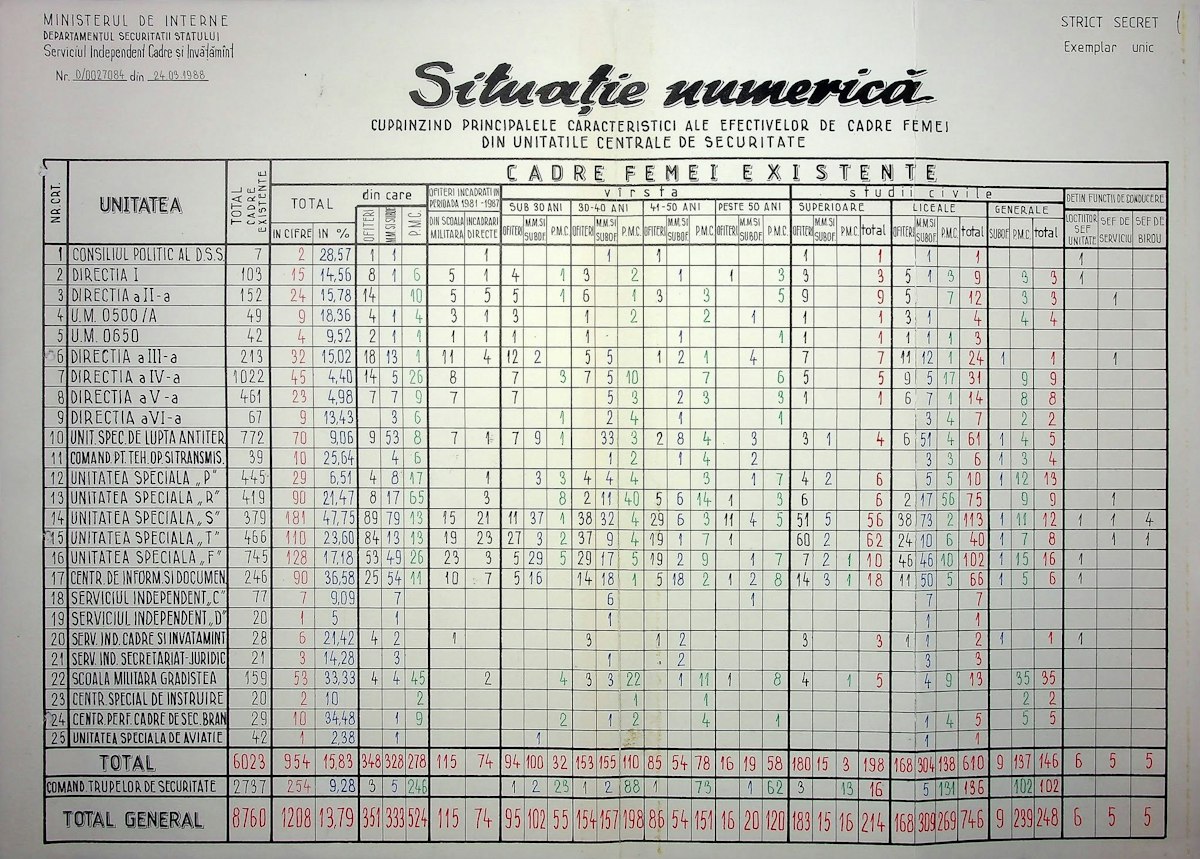 MINISTERUL DE INTERNE
DEPARTAMENTUL SECURITATII STATULUI
Serviciul Independent Cadre si Invatamint
Nr. D/0027084 din 24.03.1988
STRICT SECRET
Exemplar unic
Situație numerică
CUPRINZIND PRINCIPALELE CARACTERISTICI ALE EFECTIVELOR DE CADRE FEMEI
DIN UNITATILE CENTRALE DE SECURITATE
NR. CRT. UNITATEA TOTAL CADRE EXISTENTE CADRE FEMEI EXISTENTE
TOTAL din care OFITERI INCADRATI IN PERIOADA 1981-1987 vîrsta studii civile DETIN FUNCTII DE CONDUCERE
SUB 30 ANI 30-40 ANI 41-50 ANI PESTE 50 ANI SUPERIOARE LICEALE GENERALE
IN CIFRE IN % OFITERI M.M. SI SUBOF. P.M.C. DIN SCOALA MILITARA INCADRARI DIRECTE OFITERI M.M. SI SUBOF. P.M.C. OFITERI M.M. SI SUBOF. P.M.C. OFITERI M.M. SI SUBOF. P.M.C. OFITERI M.M. SI SUBOF. P.M.C. OFITERI M.M. SI SUBOF. P.M.C. total OFITERI M.M. SI SUBOF. P.M.C. total SUBOF. P.M.C. total LOCTIITOR SEF UNITATE SEF DE SERVICIU SEF DE BIROU
1 CONSILIUL POLITIC AL D.S.S. 7 2 28,57 1 1 1 1 1 1 1 1 1 1
2 DIRECTIA I 103 15 14,56 8 1 6 5 1 4 3 2 1 1 3 3 3 5 1 3 9 3 3 1
3 DIRECTIA a II-a 152 24 15,78 14 10 5 5 5 1 6 1 3 3 5 9 9 5 7 12 3 3 1
4 U.M. 0500/A 49 9 18,36 4 1 4 3 1 3 1 2 2 1 1 1 3 1 4 4 4
5 U.M. 0650 42 4 9,52 2 1 1 1 1 1 1 1 1 1 1 1 1 1 3
6 DIRECTIA a III-a 213 32 15,02 18 13 1 11 4 12 2 5 5 1 2 1 4 7 7 11 12 1 24 1 1 1
7 DIRECTIA a IV-a 1022 45 4,40 14 5 26 8 7 3 7 5 10 7 6 5 5 9 5 17 31 9 9
8 DIRECTIA a V-a 461 23 4,98 7 7 9 7 7 5 3 2 3 3 1 1 6 7 1 14 8 8
9 DIRECTIA a VI-a 67 9 13,43 3 6 1 2 4 1 1 3 4 7 2 2
10 UNIT. SPEC. DE LUPTA ANTITER. 772 70 9,06 9 53 8 7 1 7 9 1 33 3 2 8 4 3 3 1 4 6 51 4 61 1 4 5
11 COMAND. PT. TEH. OP. SI TRANSMIS. 39 10 25,64 4 6 1 2 1 4 2 3 3 6 1 3 4
12 UNITATEA SPECIALA „P" 445 29 6,51 4 8 17 1 3 3 4 4 4 3 1 7 4 2 6 5 5 10 1 12 13
13 UNITATEA SPECIALA „R" 419 90 21,47 8 17 65 3 8 2 11 40 5 6 14 1 3 6 6 2 17 56 75 9 9 1
14 UNITATEA SPECIALA „S" 379 181 47,75 89 79 13 15 21 11 37 1 38 32 4 29 6 3 11 4 5 51 5 56 38 73 2 113 1 11 12 1 1 4
15 UNITATEA SPECIALA „T" 466 110 23,60 84 13 13 19 23 27 3 2 37 9 4 19 1 7 1 60 2 62 24 10 6 40 1 7 8 1 1
16 UNITATEA SPECIALA „F" 745 128 17,18 53 49 26 23 3 5 29 5 29 17 5 19 2 9 1 7 7 2 1 10 46 46 10 102 1 15 16 1
17 CENTR. DE INFORM. SI DOCUMEN. 246 90 36,58 25 54 11 10 7 5 16 14 18 1 5 18 2 1 2 8 14 3 1 18 11 50 5 66 1 5 6 1
18 SERVICIUL INDEPENDENT „C" 77 7 9,09 7 6 1 7 7
19 SERVICIUL INDEPENDENT „D" 20 1 5 1 1 1 1
20 SERV. IND. CADRE SI INVATAMINT 28 6 21,42 4 2 1 3 1 2 3 3 1 1 2 1 1 1
21 SERV. IND. SECRETARIAT-JURIDIC 21 3 14,28 3 1 2 3 3
22 SCOALA MILITARA GRADISTEA 159 53 33,33 4 4 45 2 4 3 3 22 1 11 1 8 4 1 5 4 9 13 35 35
23 CENTR. SPECIAL DE INSTRUIRE 20 2 10 2 1 1 2 2
24 CENTR. PERF. CADRE DE SEC. BRAN 29 10 34,48 1 9 2 1 2 4 1 1 4 5 5 5
25 UNITATEA SPECIALA DE AVIATIE 42 1 2,38 1 1 1 1
TOTAL 6023 954 15,83 348 328 278 115 74 94 100 32 153 155 110 85 54 78 16 19 58 180 15 3 198 168 304 138 610 9 137 146 6 5 5
COMAND. TRUPELOR DE SECURITATE 2737 254 9,28 3 5 246 1 2 23 1 2 88 1 73 1 62 3 13 16 5 131 136 102 102
TOTAL GENERAL 8760 1208 13,79 351 333 524 115 74 95 102 55 154 157 198 86 54 151 16 20 120 183 15 16 214 168 309 269 746 9 239 248 6 5 5